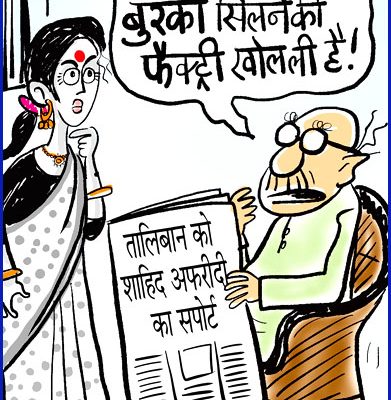 बुरका सिलने की
फैक्ट्री खोलली है!
तालिबान को
शाहिद अफरीदी
का सपोर्ट